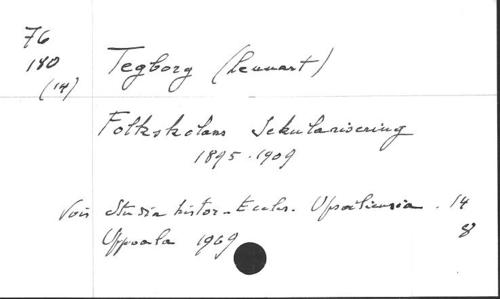 76
180
(14)
Tegborg (Lennart)
Folkskolans Sekularisering
1895-1909
Voir Studia histor.-Eccles. Upsaliensia. 14
Uppsala 1969 8